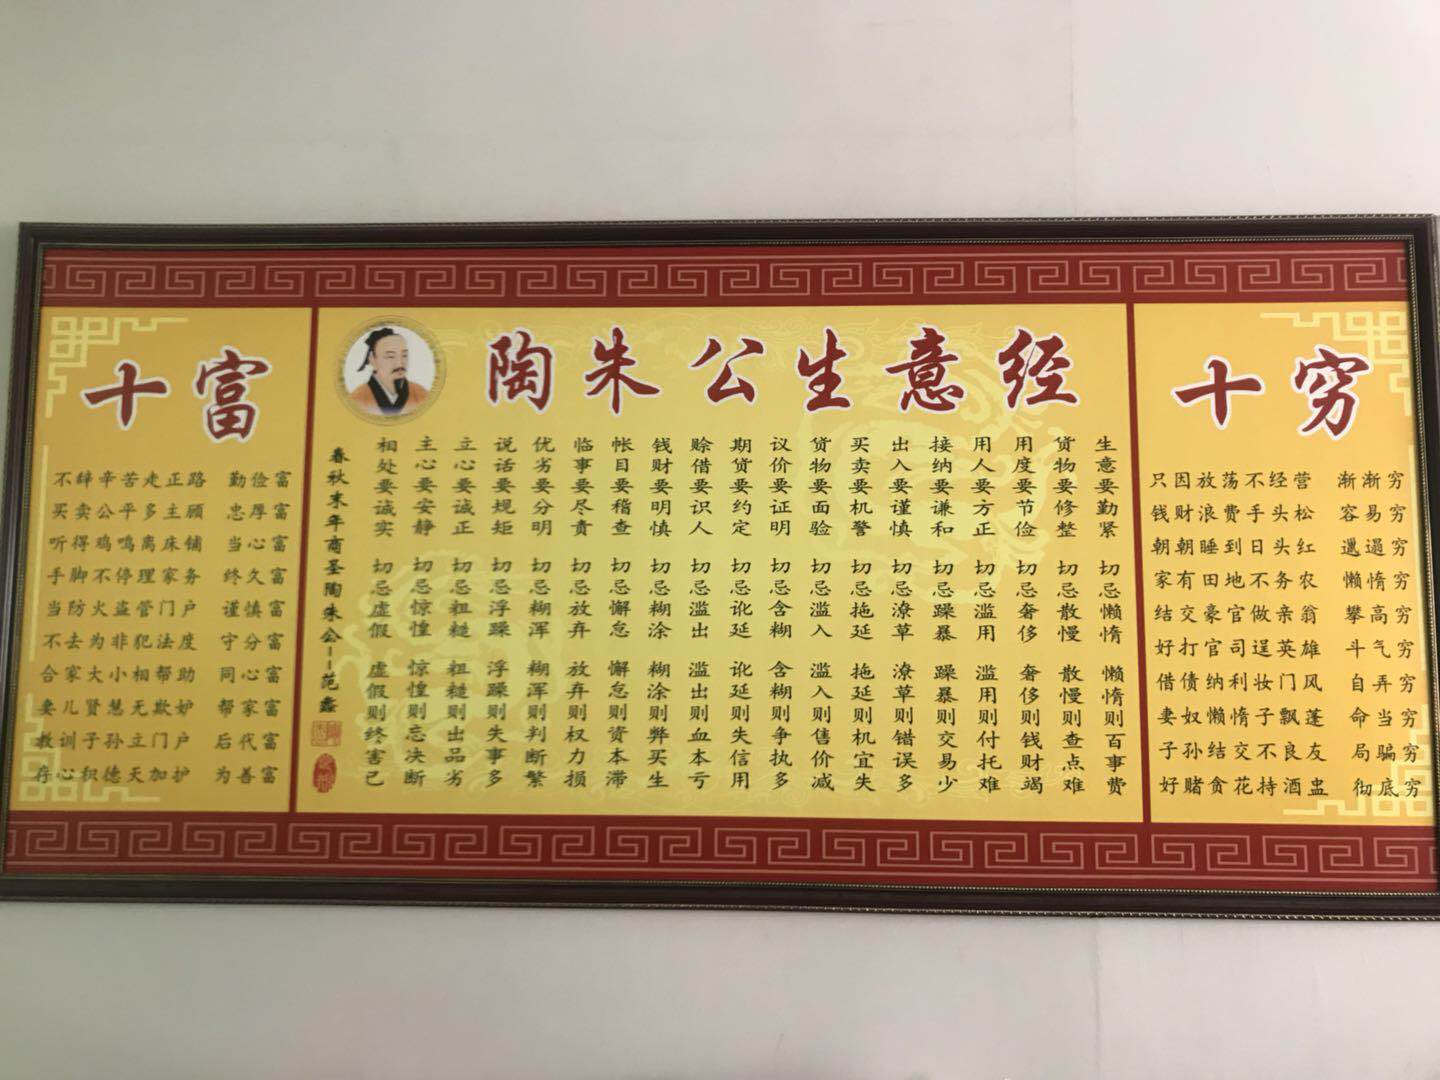 十富
不辞辛苦走正路 勤俭富
买卖公平多主顾 忠厚富
听得鸡鸣离床铺 当心富
手脚不停理家务 终久富
当防火盗管门户 谨慎富
不去为非犯法度 守分富
合家大小相帮助 同心富
妻儿贤慧无欺妒 帮家富
教训子孙立门户 后代富
存心积德天加护 为善富
陶朱公生意经
生意要勤紧 切忌懒惰 懒惰则百事费
货物要修整 切忌散慢 散慢则查点难
用度要节俭 切忌奢侈 奢侈则钱财竭
用人要方正 切忌滥用 滥用则付托难
接纳要谦和 切忌躁暴 躁暴则交易少
出入要谨慎 切忌潦草 潦草则错误多
买卖要机警 切忌拖延 拖延则机宜失
货物要面验 切忌滥入 滥入则售价减
议价要证明 切忌含糊 含糊则争执多
期货要约定 切忌讹延 讹延则失信用
赊借要识人 切忌滥出 滥出则血本亏
钱财要明慎 切忌糊涂 糊涂则弊买生
帐目要稽查 切忌懈怠 懈怠则资本滞
临事要尽责 切忌放弃 放弃则权力损
优劣要分明 切忌糊浑 糊浑则判断繁
说话要规矩 切忌浮躁 浮躁则失事多
立心要诚正 切忌粗糙 粗糙则出品劣
主心要安静 切忌惊惶 惊惶则忘决断
相处要诚实 切忌虚假 虚假则终害已
春秋末年商圣陶朱公--范蠡
十穷
只因放荡不经营 渐渐穷
钱财浪费手头松 容易穷
朝朝睡到日头红 邋遢穷
家有田地不务农 懒惰穷
结交豪官做亲翁 攀高穷
好打官司逞英雄 斗气穷
借债纳利妆门风 自弄穷
妻奴懒惰子飘蓬 命当穷
子孙结交不良友 局骗穷
好赌贪花持酒盅 彻底穷